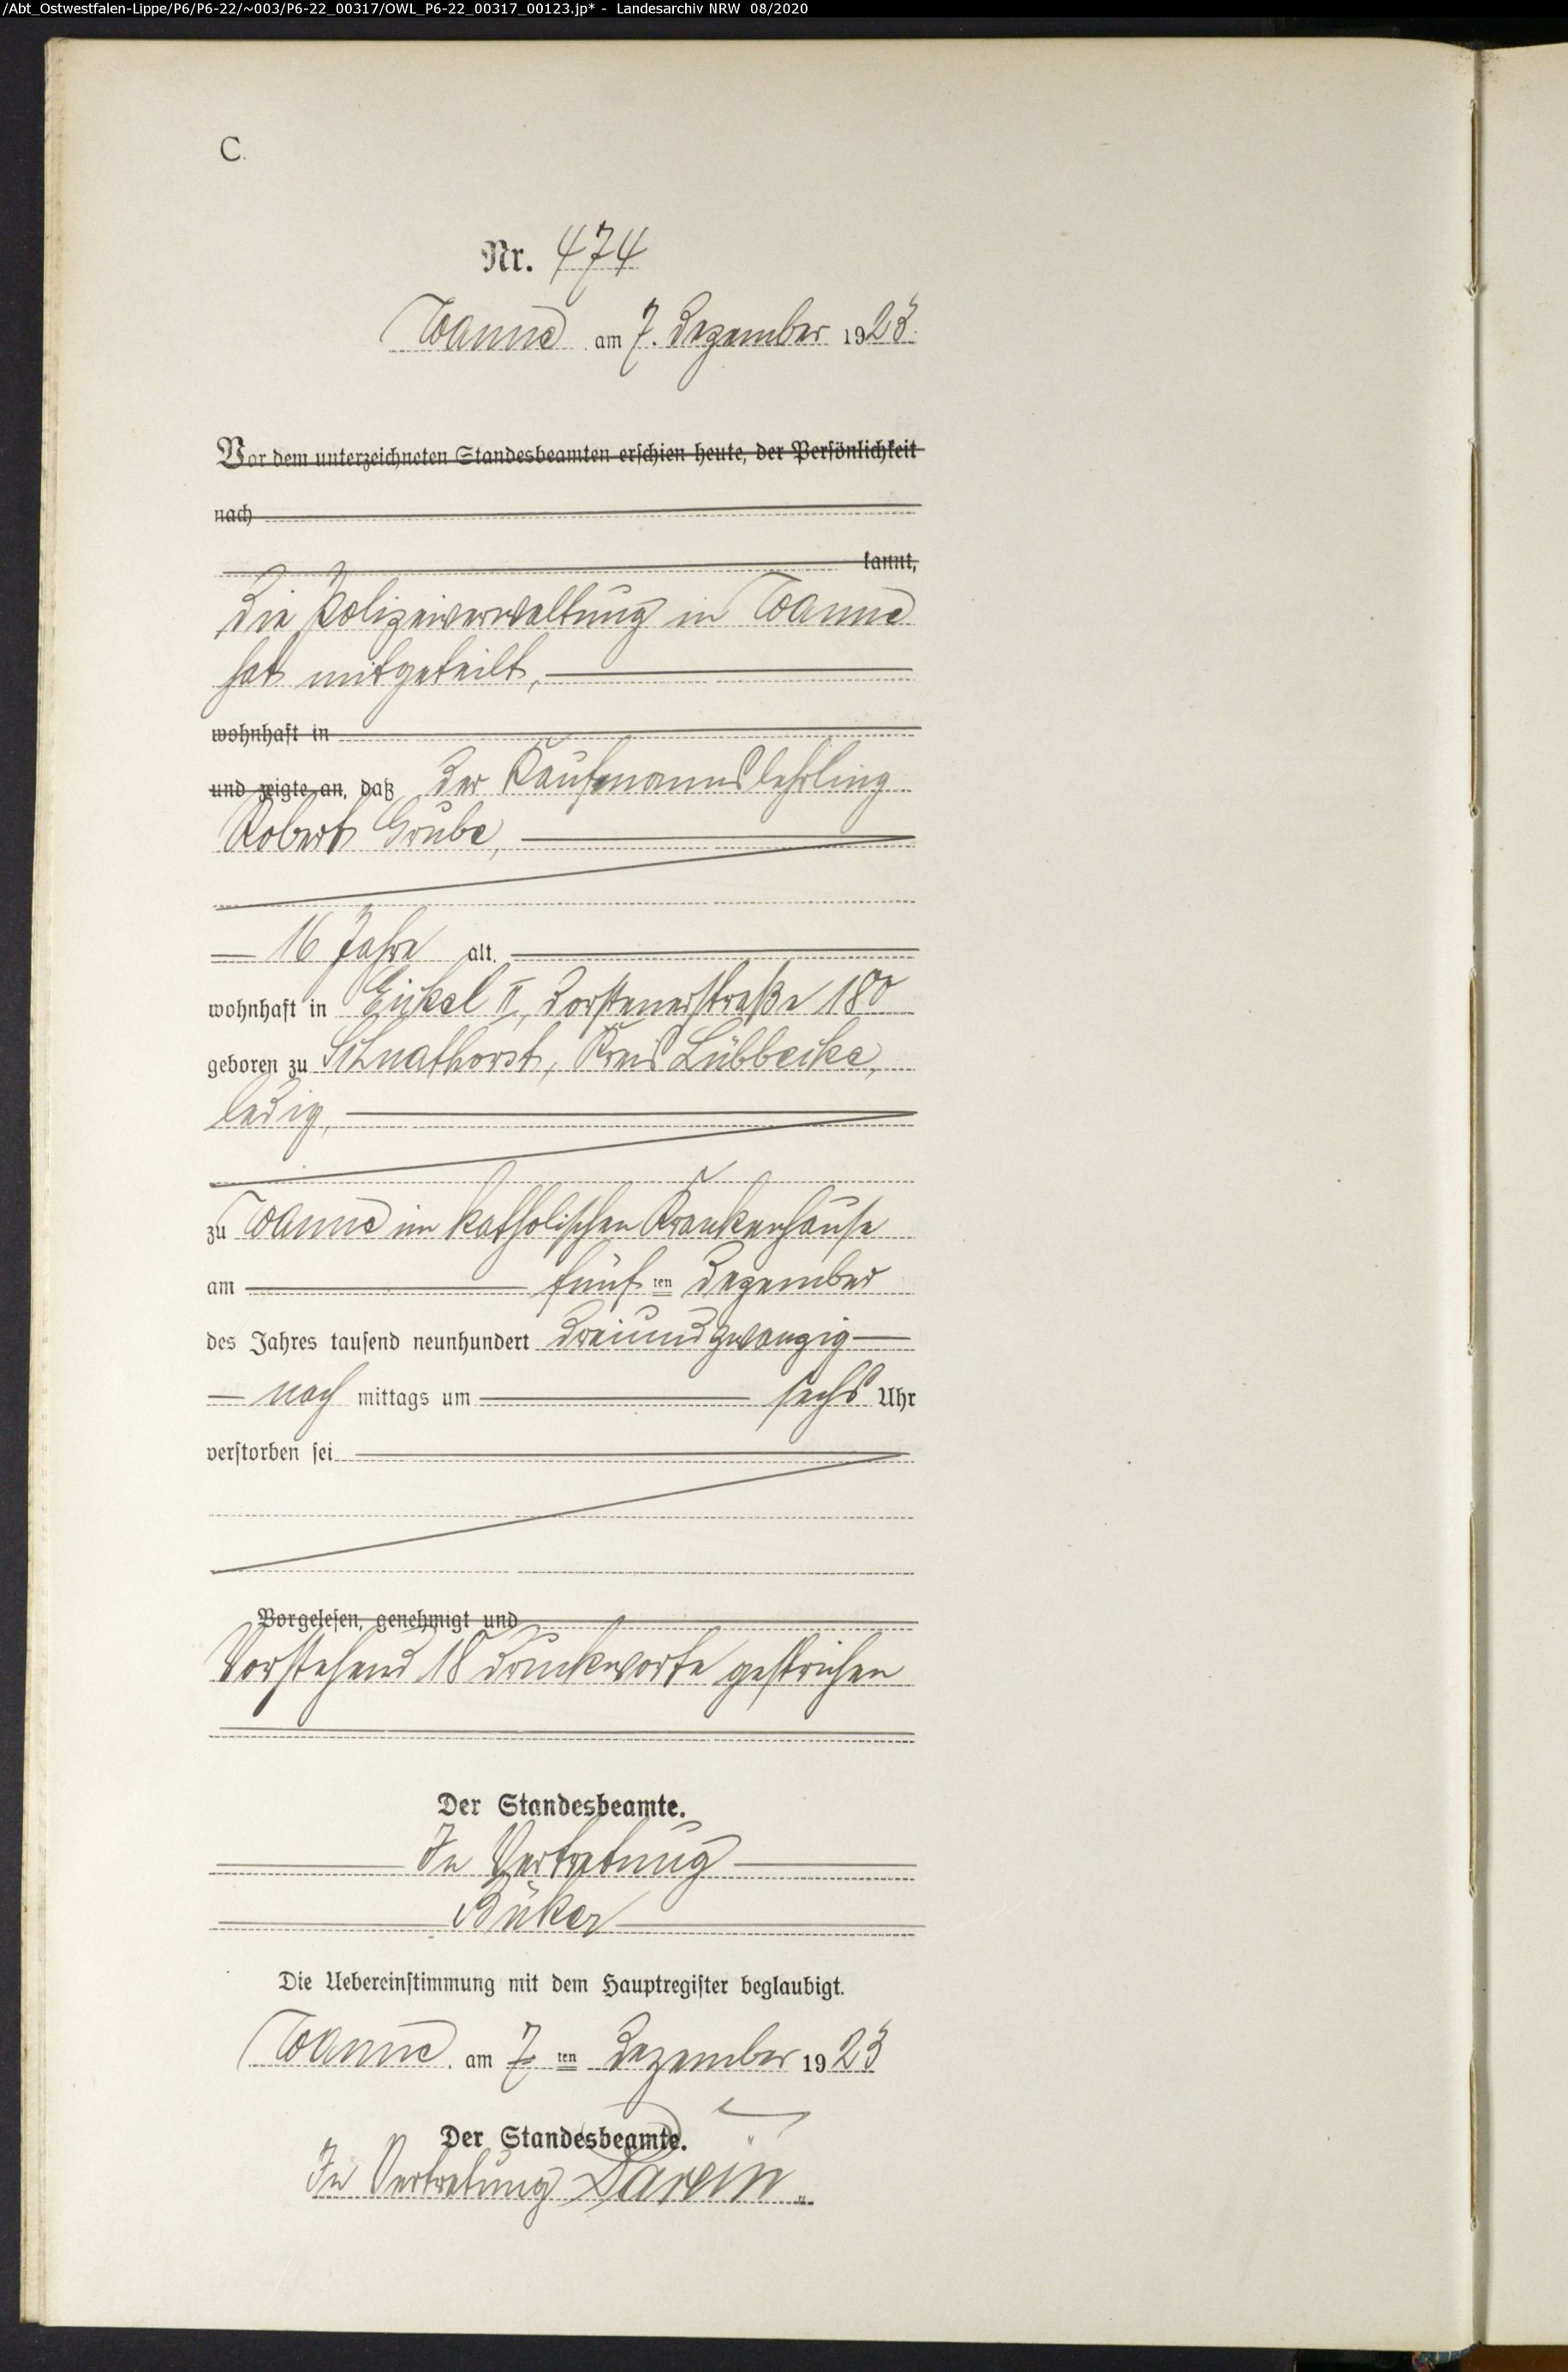 /Abt_Ostwestfalen-Lippe/P6/P6-22/~003/P6-22_00317/OWL_P6-22_00317_00123.jp* - Landesarchiv NRW 08/2020
C.
Nr. 474
Wanne am 7. Dezember 1923.
Vor dem unterzeichneten Standesbeamten erschien heute, der Persönlichkeit
nach
kannt,
Die Polizeiverwaltung in Wanne
hat mitgeteilt,
wohnhaft in
und zeigte an, daß der Kaufmannslehrling
Robert Grube,
16 Jahre alt,
wohnhaft in Eickel II, Dorstenerstraße 180
geboren zu Schnathorst, Kreis Lübbecke,
ledig,
zu Wanne im katholischen Krankenhause
am fünf ten Dezember
des Jahres tausend neunhundert dreiundzwanzig
nach mittags um sechs Uhr
verstorben sei
Vorgelesen, genehmigt und
Vorstehend 18 Druckworte gestrichen
Der Standesbeamte.
In Vertretung
Büker
Die Uebereinstimmung mit dem Hauptregister beglaubigt.
Wanne am 7 ten Dezember 1923
Der Standesbeamte.
In Vertretung